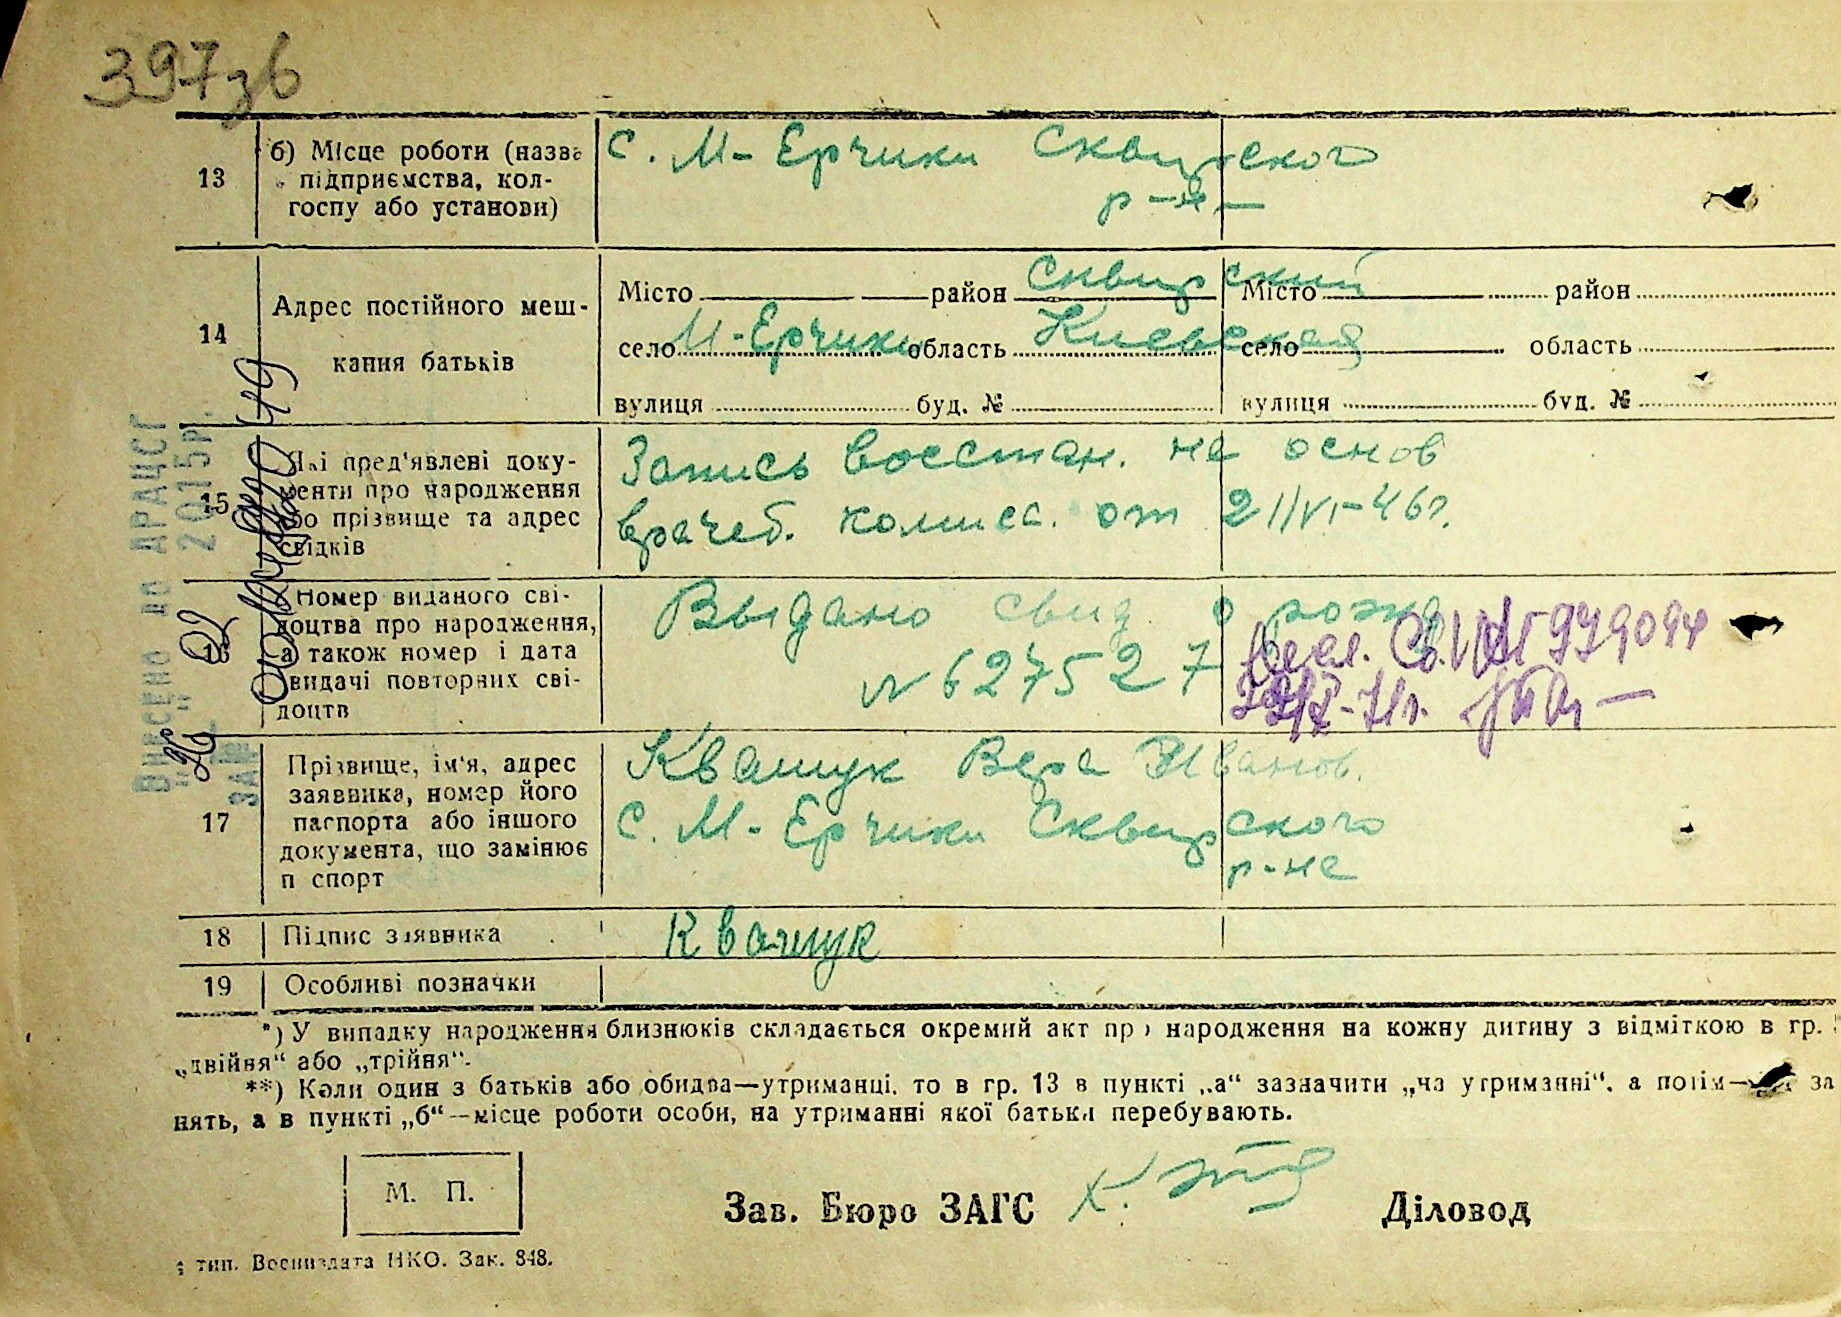 397зв
13
б) Місце роботи (назва
підприємства, кол-
госпу або установи)
с. М-Ерчики Сквирского
р-н-
14
Адрес постійного меш-
кання батьків
Місто район Сквирский Місто район
село М-Ерчики область Киевская село область
вулиця буд. № вулиця буд. №
15
Які пред'явлені доку-
менти про народження
або прізвище та адрес
свідків
Запись восстан. на основ
врачеб. комисс. от 2/VI-46г.
16
Номер виданого сві-
доцтва про народження,
а також номер і дата
видачі повторних сві-
доцтв
Выдано свид о рожд
№ 627527
979094
71г.
17
Прізвище, ім'я, адрес
заявника, номер його
паспорта або іншого
документа, що замінює
п спорт
Квашук Вера Иванов.
с. М-Ерчики Сквирского
р-на
18 Підпис заявника Квашук
19 Особливі позначки
Внесено до ДРАЦСГ
2015р.
*) У випадку народження близнюків складається окремий акт про народження на кожну дитину з відміткою в гр.
„двійня“ або „трійня“.
**) Коли один з батьків або обидва—утриманці, то в гр. 13 в пункті „а“ зазначити „на утриманні“, а потім— за
нять, а в пункті „б“—місце роботи особи, на утриманні якої батьки перебувають.
М. П.
Зав. Бюро ЗАГС Діловод
тип. Воениздата НКО. Зак. 848.